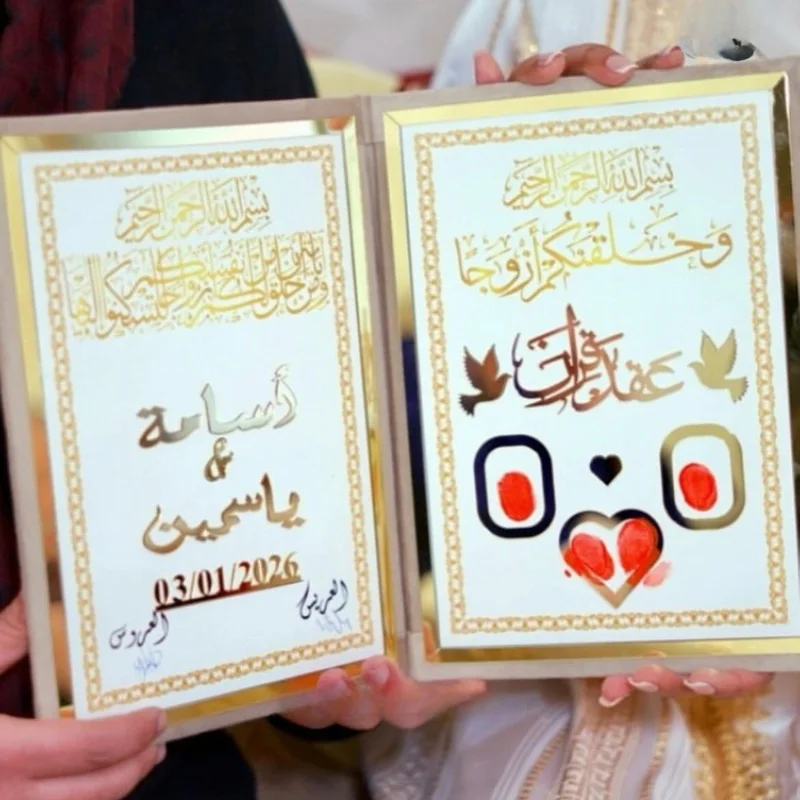 بسم الله الرحمن الرحيم
ومن آياته أن خلق لكم من أنفسكم أزواجا لتسكنوا إليها
أسامة
&
ياسمين
03/01/2026
العريس
العروس
بسم الله الرحمن الرحيم
وخلقنكم أزوجا
عقد قران